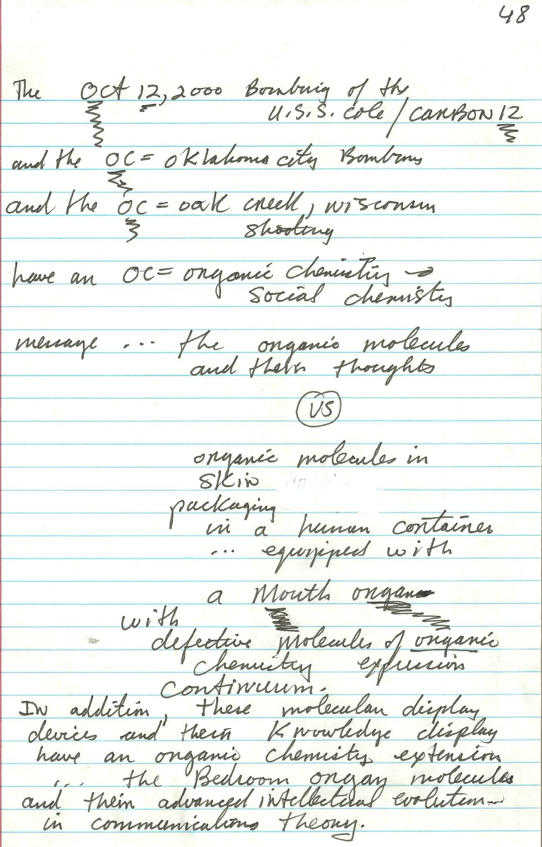 48
The OCt 12, 2000 Bombing of the
U.S.S. Cole / CARBON 12
and the OC = oklahoma city Bombing
and the OC = oak creek, wisconsin
shooting
have an OC = organic chemistry →
Social chemistry
message ... the organic molecules
and their thoughts
VS
organic molecules in
skin
packaging
in a human container
... equipped with
a Mouth organ
with
defective molecules of organic
chemistry expression
continuum.
In addition, these molecular display
devices and their Knowledge display
have an organic chemistry extension
... the Bedroom organ molecules
and their advanced intellectual evolution
in communications theory.